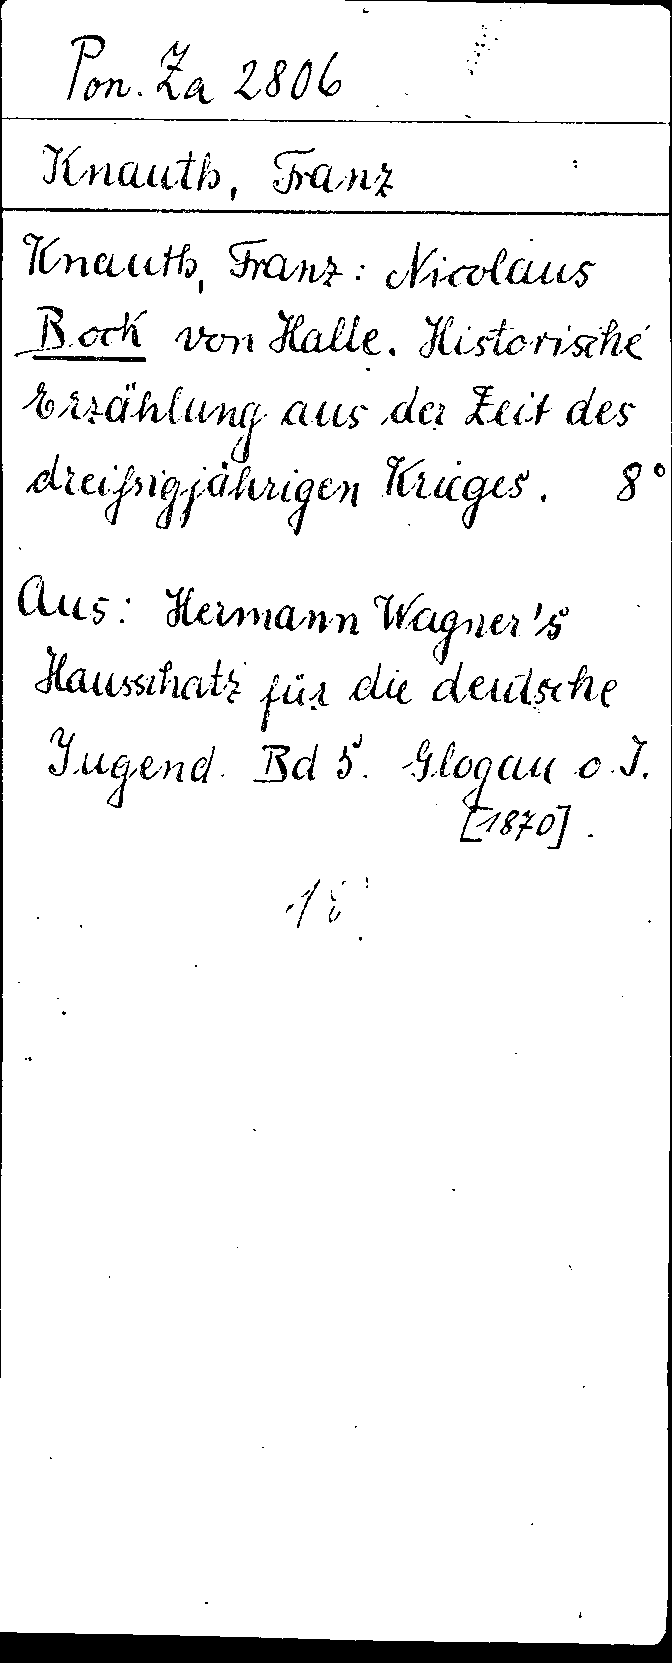 Pon. Za 2806
Knauth, Franz
Knauth, Franz: Nicolaus
Bock von Halle. Historische
Erzählung aus der Zeit des
dreißigjährigen Krieges. 8°
Aus: Hermann Wagner's
Hausschatz für die deutsche
Jugend. Bd 5. Glogau o. J.
[1870].